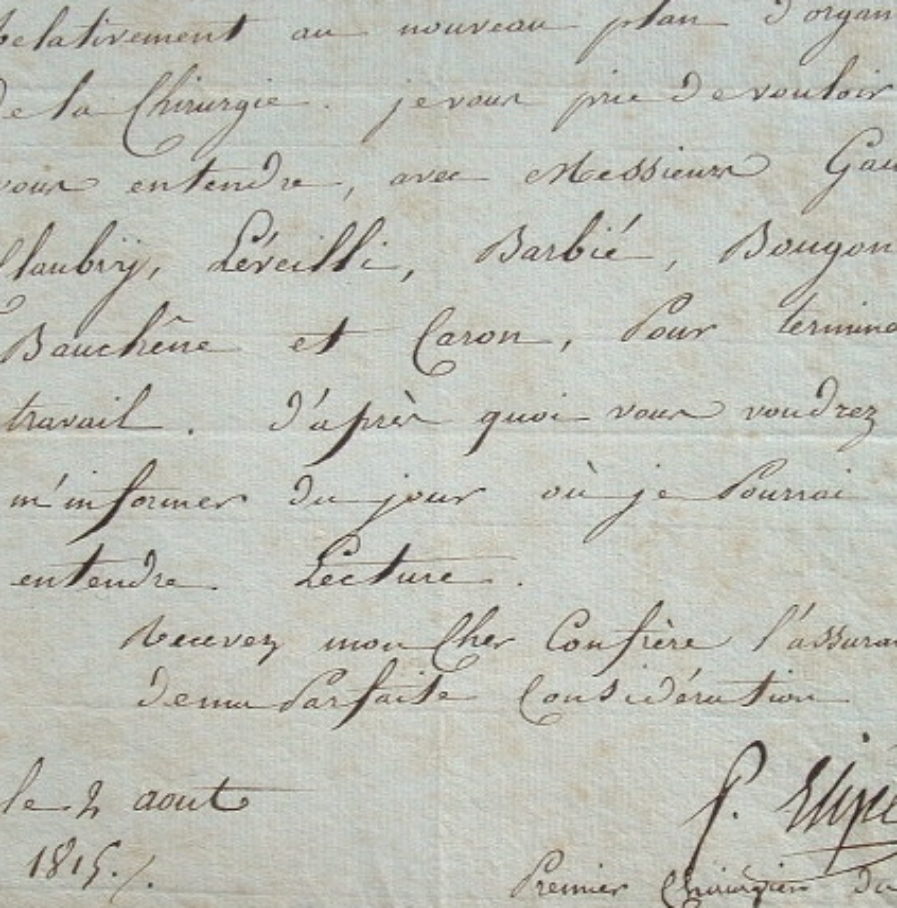 Relativement au nouveau plan d'organ
de la Chirurgie. je vous prie de vouloir
vous entendre, avec Messieurs Gau
Claubry, Léveillé, Barbié, Bougon
Bauchêne et Caron, Pour termine
travail. d'après quoi vous voudrez
m'informer du jour où je Pourrai
entendre Lecture.
Recevez mon Cher Confrère l'assuran
de ma Parfaite Considération
le 2 aout
1815./.
P. Elysé
Premier Chirurgien du